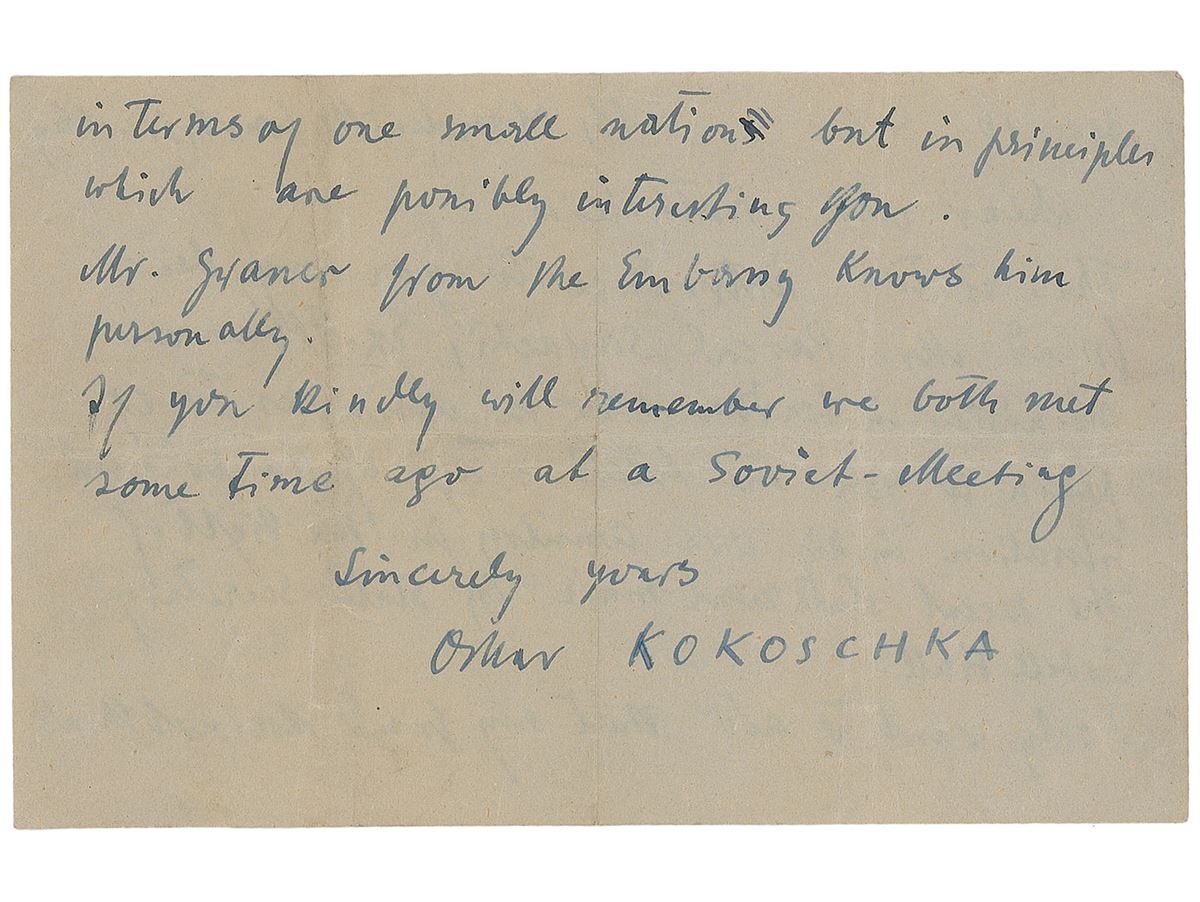 in terms of one small nation but in principles
which are possibly interesting you.
Mr. Graner from the Embassy knows him
personally.
If you kindly will remember we both met
some time ago at a Soviet-Meeting
Sincerely yours
Oskar KOKOSCHKA